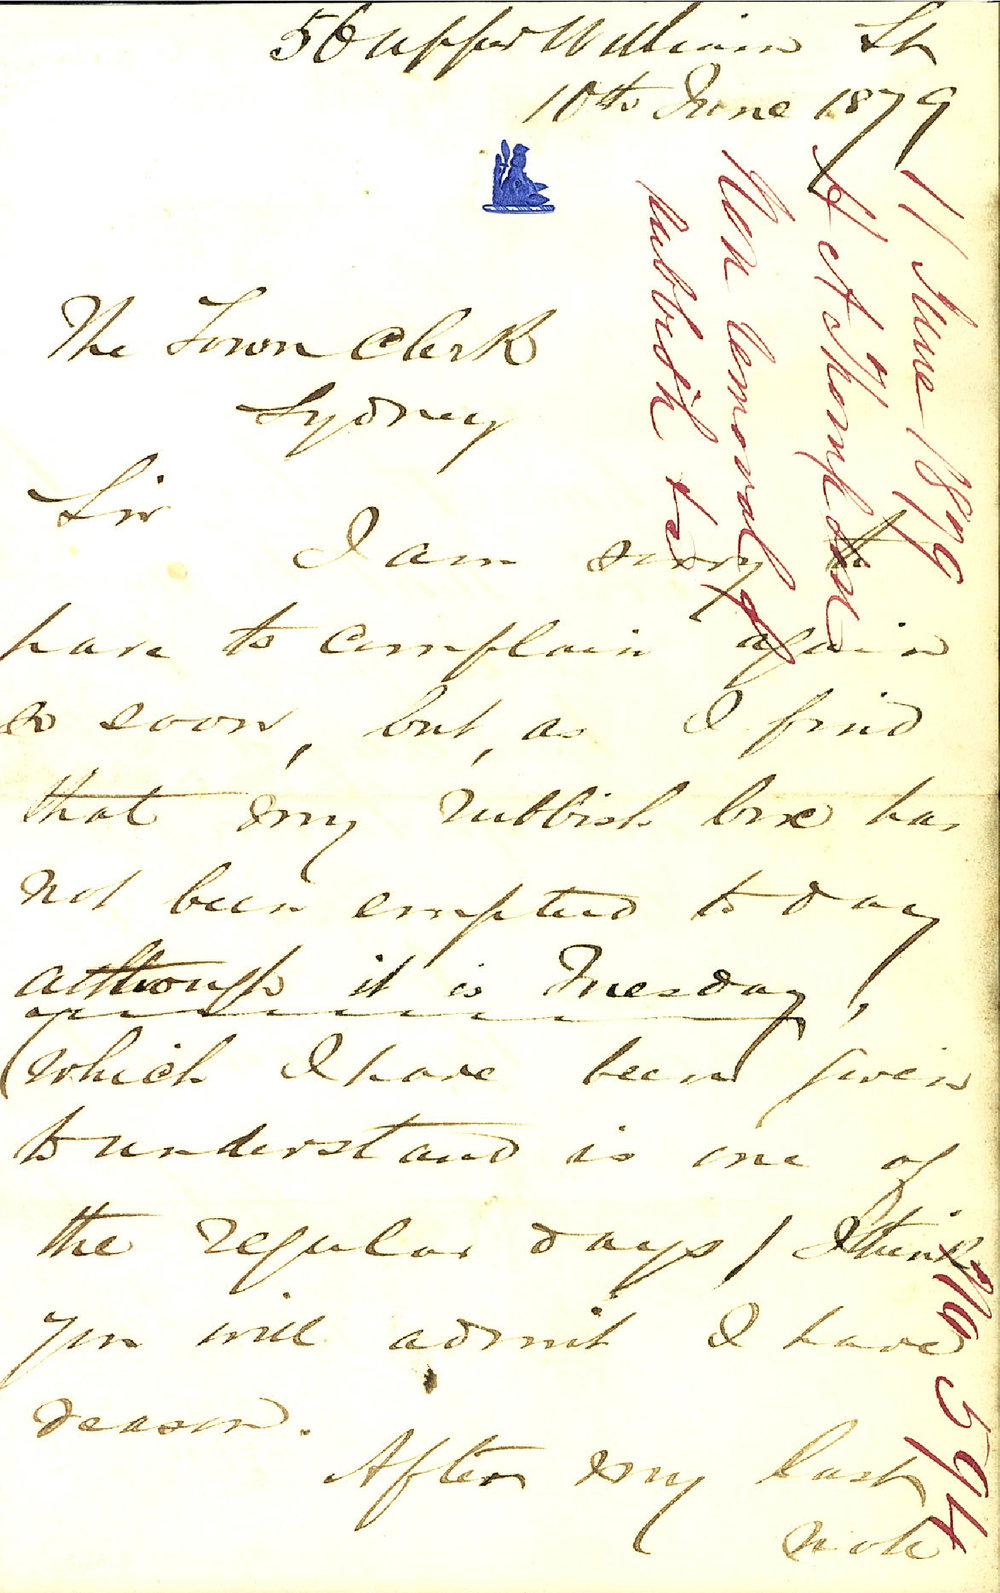 56 Upper William St
10th June 1879
The Town Clerk
Sydney
Sir
I am sorry to
have to complain again
so soon, but, as I find
that my rubbish box has
not been emptied to day
although it is Tuesday,
(which I have been given
to understand is one of
the regular days) I think
you will admit I have
reason.
After my last
note
11 June 1879
A Thompson
Non removal of
rubbish &c
No 594